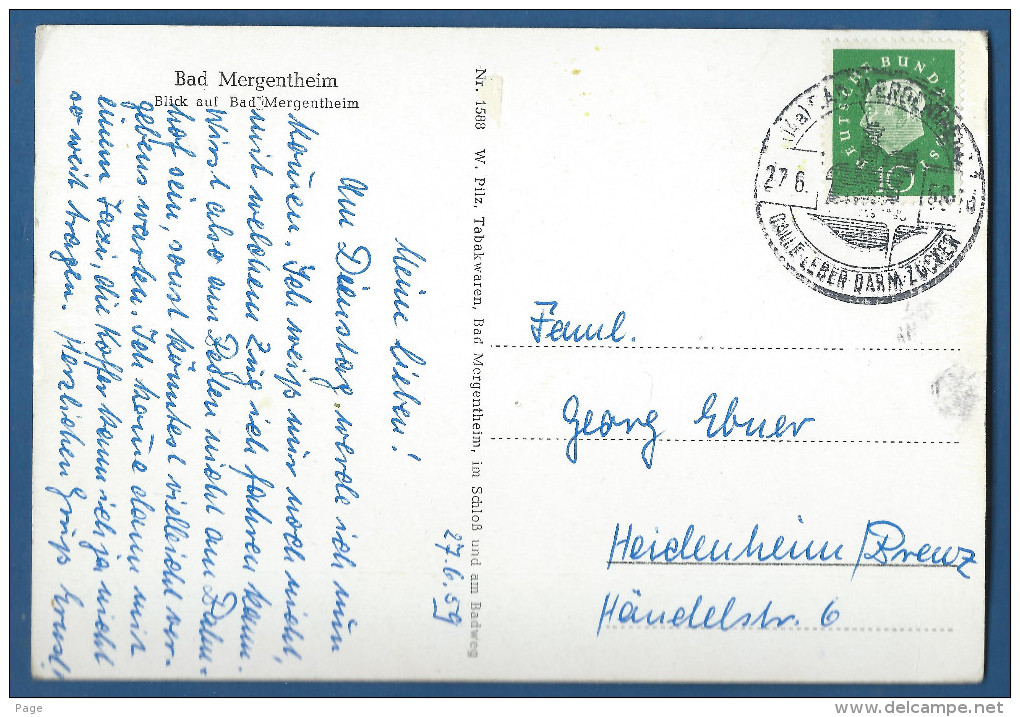 Bad Mergentheim
Blick auf Bad Mergentheim
27.6.59
Meine Lieben!
Am Dienstag werde ich nun
kommen. Ich weiß nur noch nicht,
mit welchem Zug ich fahren kann.
Wirst also am besten nicht am Bahn=
hof sein, sonst könntest vielleicht ver-
gebens warten. Ich käme dann mit
einem Taxi, die Koffer kann ich ja nicht
so weit tragen. Herzlichen Gruß
Nr. 1588 W. Pilz, Tabakwaren, Bad Mergentheim, im Schloß und am Badweg
DEUTSCHE BUNDES
10
27.6.
GALLE LEBER DARM ZUCKER
Faml.
Georg Ebner
Heidenheim/Brenz
Händelstr. 6
Page
www.delcampe.net